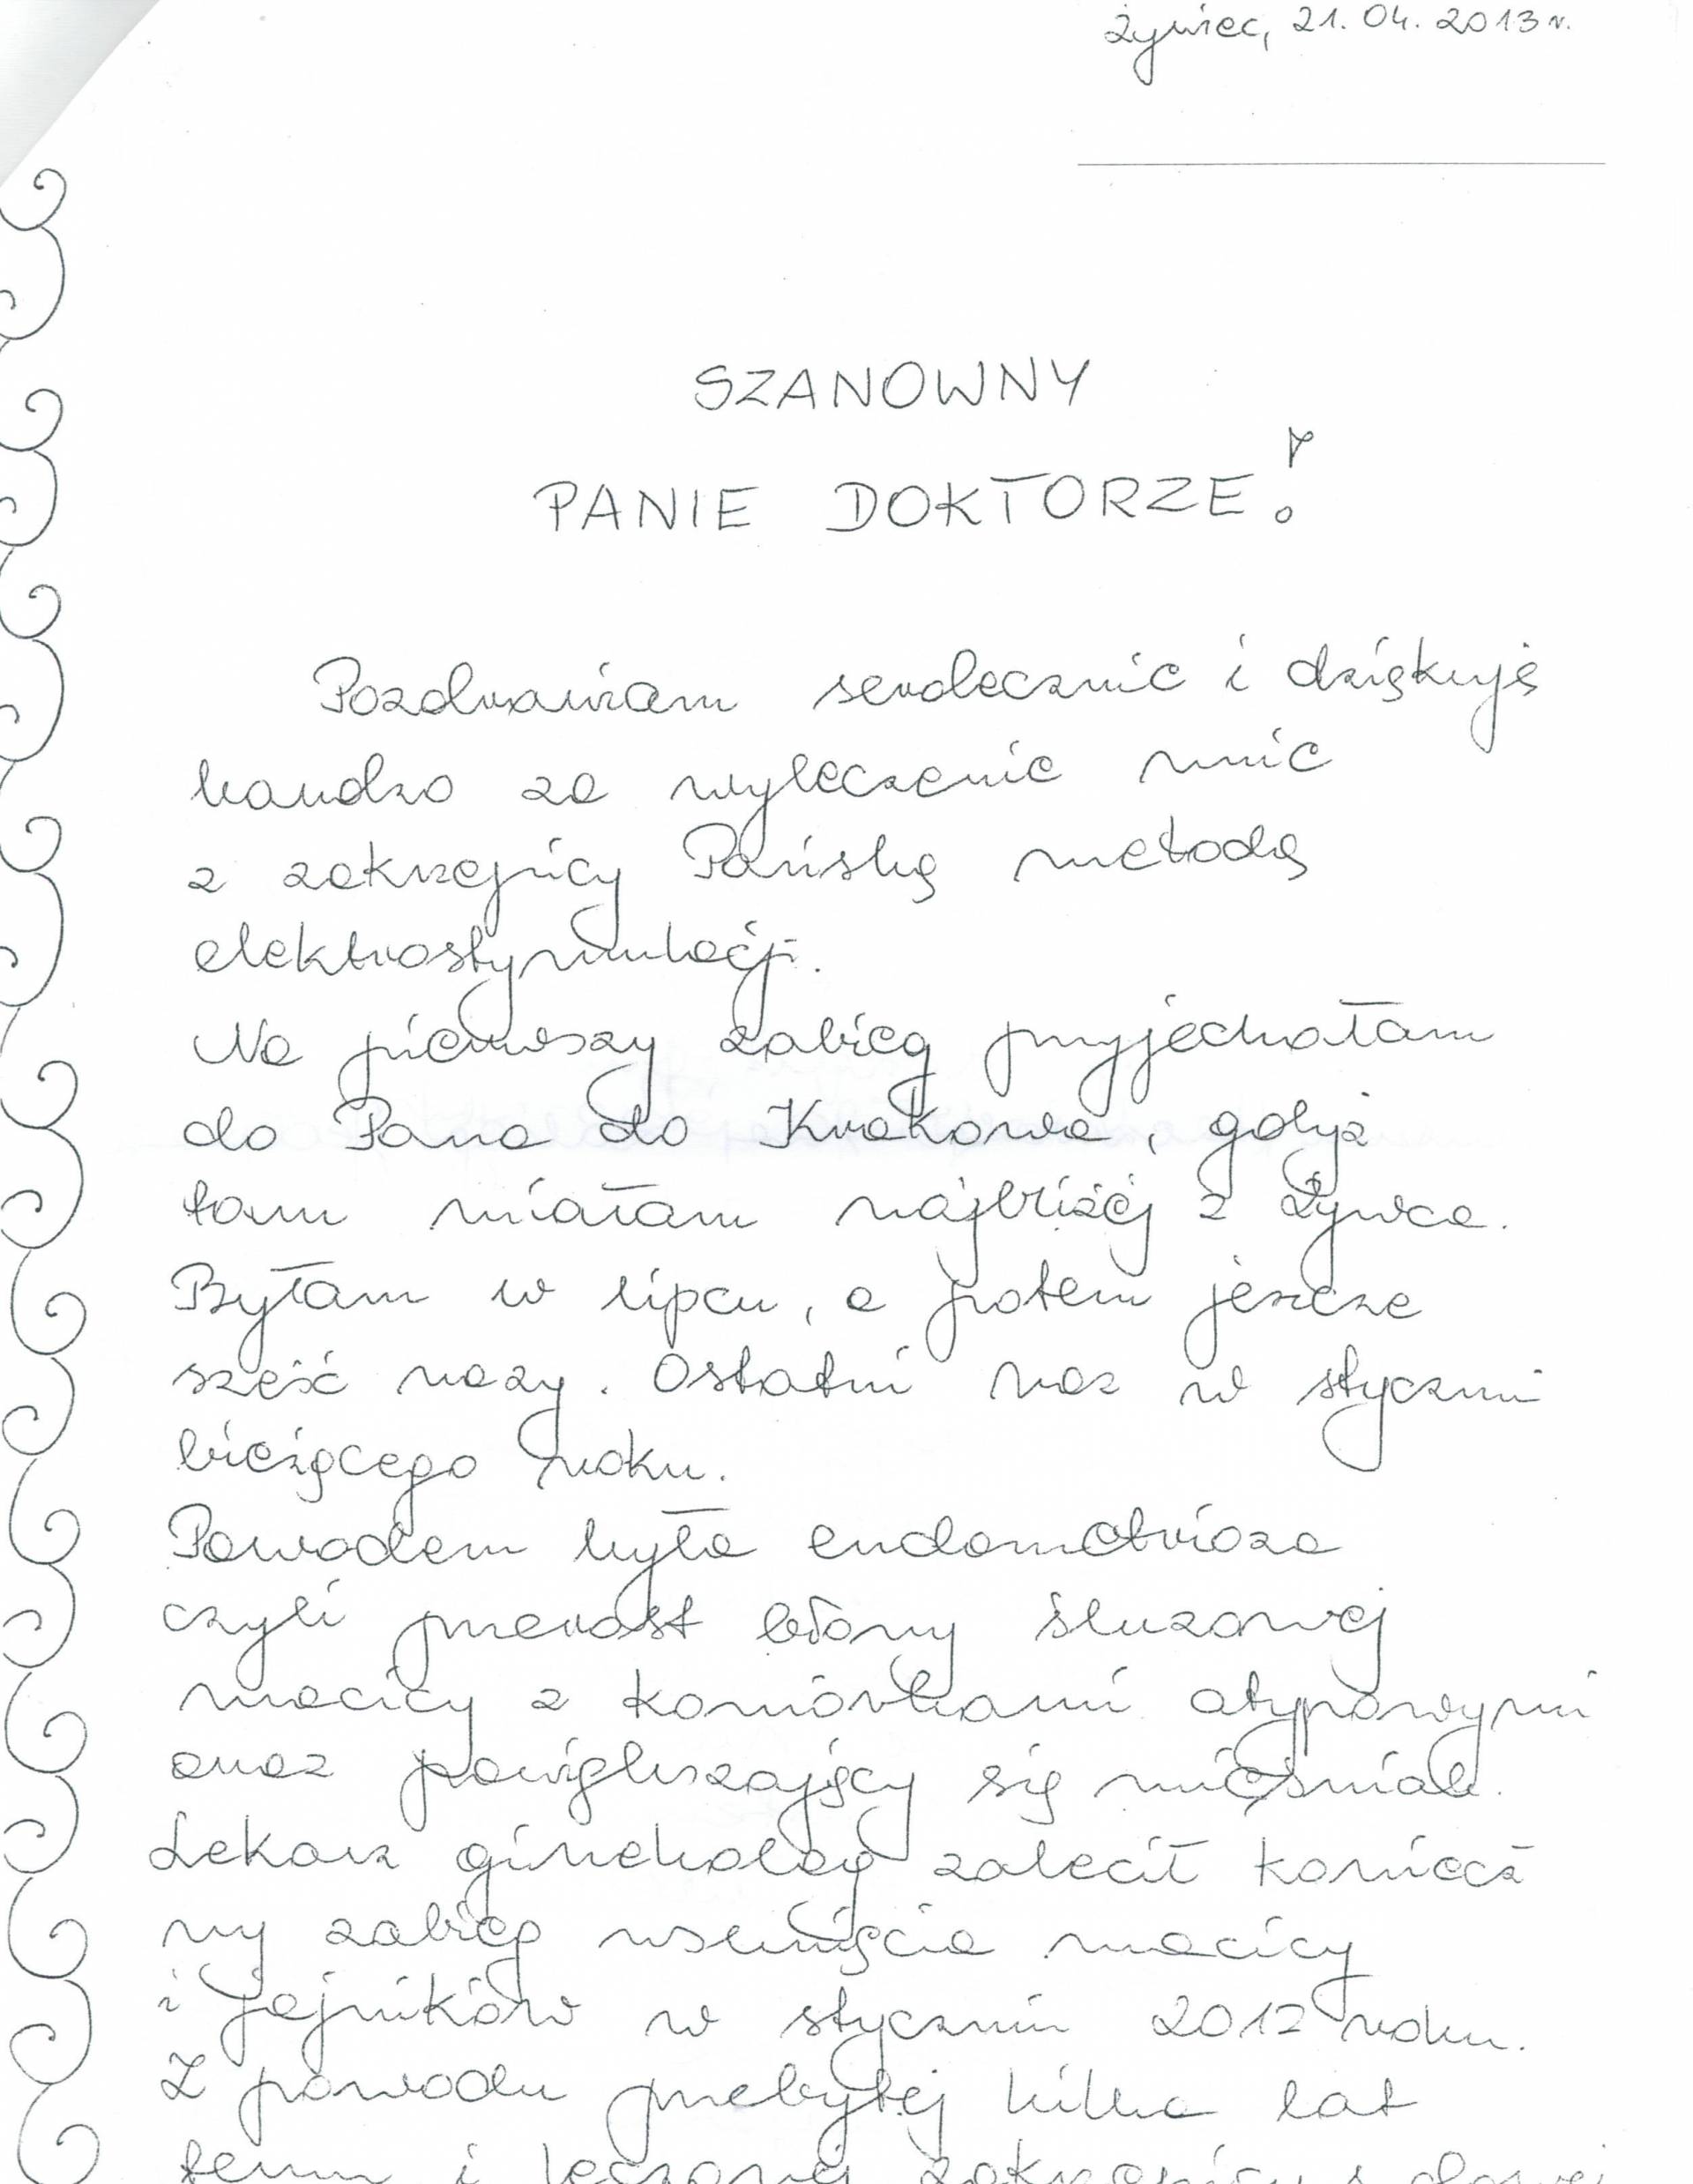 Żywiec, 21.04.2013 r.
SZANOWNY
PANIE DOKTORZE!
Pozdrawiam serdecznie i dziękuję
bardzo za wyleczenie mnie
z zakrzepicy Pańską metodą
elektrostymulacji.
Na pierwszy zabieg przyjechałam
do Pana do Krakowa, gdyż
tam miałam najbliżej z Żywca.
Byłam w lipcu, a potem jeszcze
sześć razy. Ostatni raz w styczniu
bieżącego roku.
Powodem była endometrioza
czyli przerost błony śluzowej
macicy z komórkami atypowymi
oraz powiększający się mięśniak.
Lekarz ginekolog zalecił koniecz
ny zabieg usunięcia macicy
i jajników w styczniu 2012 roku.
Z powodu przebytej kilka lat
temu i leczonej zakrzepicy